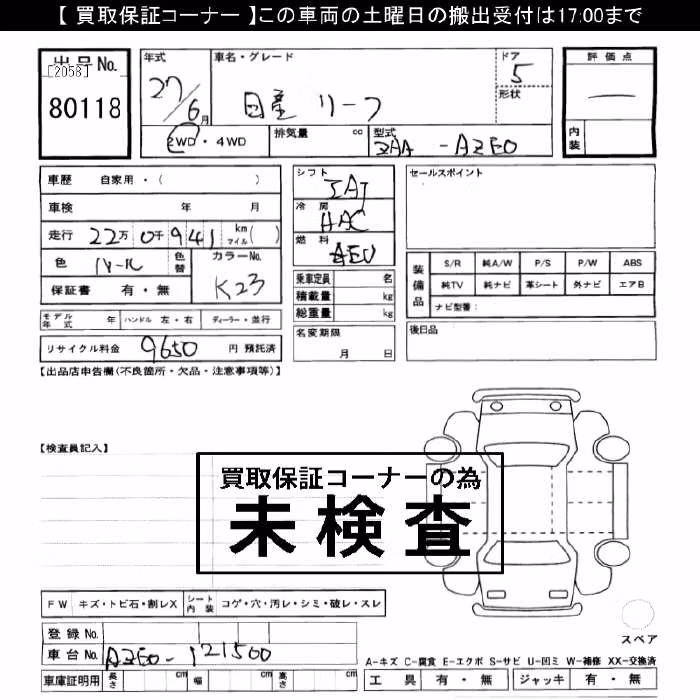 【 買取保証コーナー 】この車両の土曜日の搬出受付は17:00まで
出品No.
[2058]
80118
年式
27/6月
車名・グレード
日産 リーフ
ドア
5
形状
2WD・4WD
排気量 cc
型式
ZAA-AZE0
評価点
—
内装
車歴 自家用・( )
車検 年 月
走行 22万 0千 941 km マイル( )
色 パール
色替
カラーNo.
K23
保証書 有・無
モデル年式 年 ハンドル 左・右 ディーラー・並行
リサイクル料金 9650 円 預託済
シフト
IAT
冷房
HAC
燃料
乗車定員 名
積載量 kg
総重量 kg
名変期限
月 日
セールスポイント
装備品
S/R 純A/W P/S P/W ABS
純TV 純ナビ 革シート 外ナビ エアB
ナビ型番:
後日品
【出品店申告欄(不良箇所・欠品・注意事項等)】
【検査員記入】
買取保証コーナーの為
未検査
FW キズ・トビ石・割レX シート内装 コゲ・穴・汚レ・シミ・破レ・スレ
登録No.
車台No. AZE0-121500
車庫証明用 長さ cm 幅 cm 高さ cm
スペア
A-キズ C-腐食 E-エクボ S-サビ U-凹ミ W-補修 XX-交換済
工具 有・無 ジャッキ 有・無